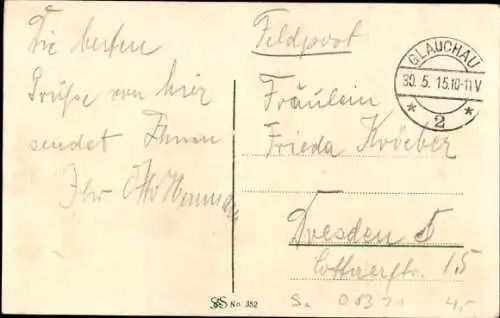 Die besten
Grüße von hier
sendet Ihnen
Ihr Otto
Feldpost
GLAUCHAU
30.5.15.10-11V
* 2 *
Fräulein
Frieda Kröber
Dresden
15
S&S No. 352
Sa 0837